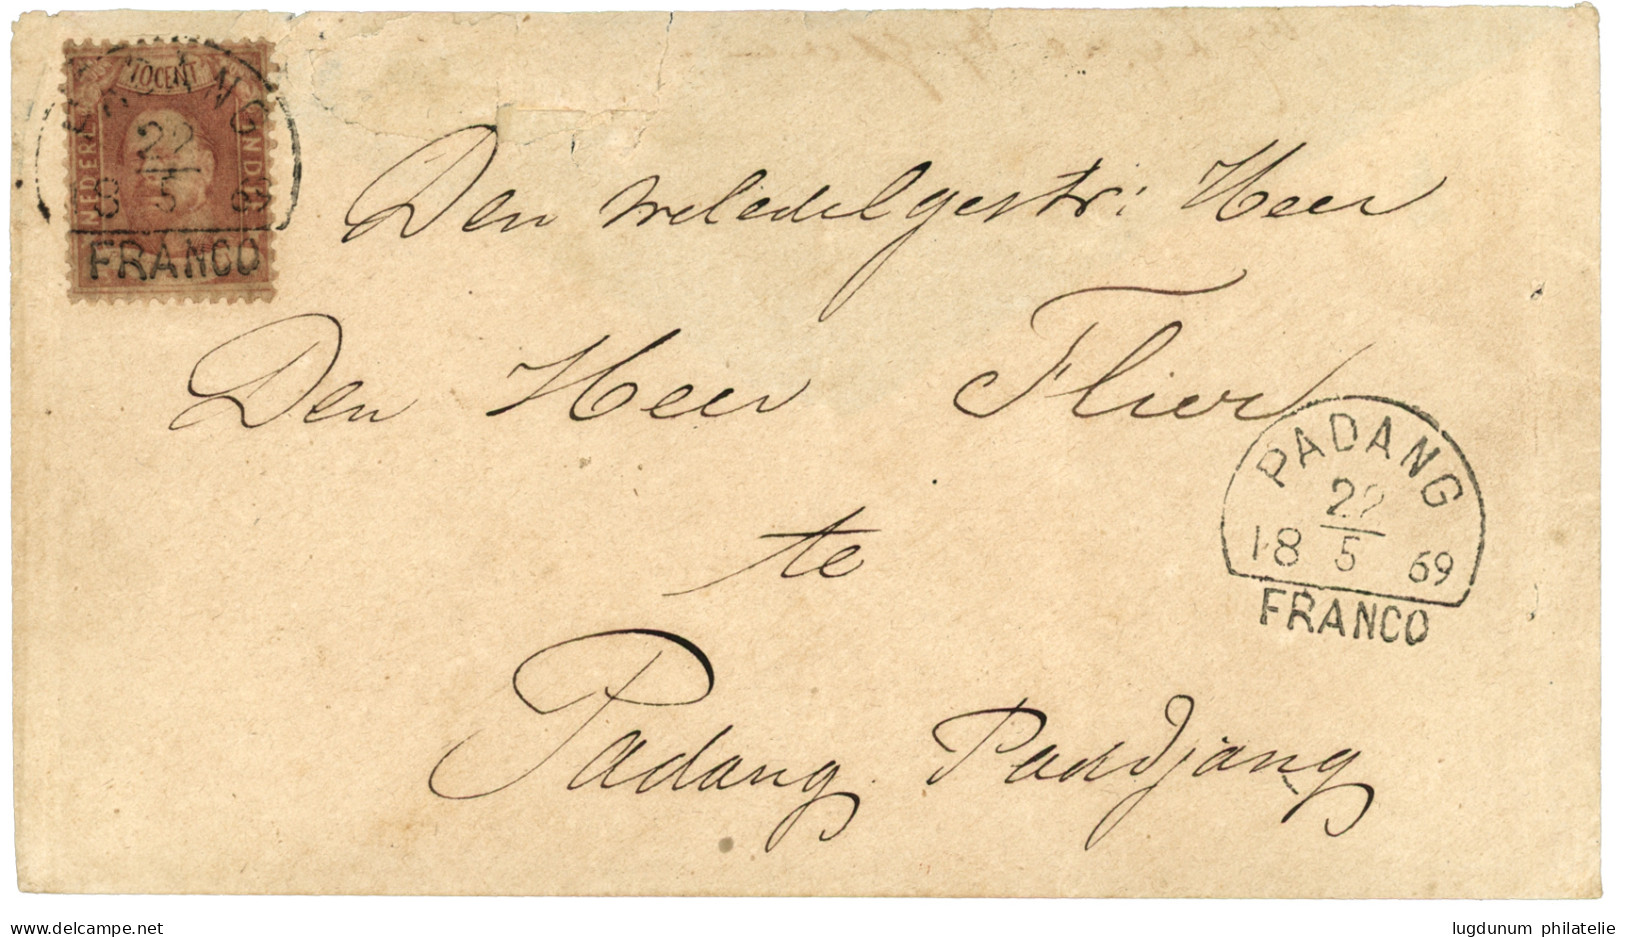 10 CENT
NEDERL. INDIE
PADANG
22
18 5 69
FRANCO
Den weledelgestr: Heer
Den Heer Flier
PADANG
22
18 5 69
FRANCO
te
Padang Pandjang
delcampe.net
lugdunum philatelie